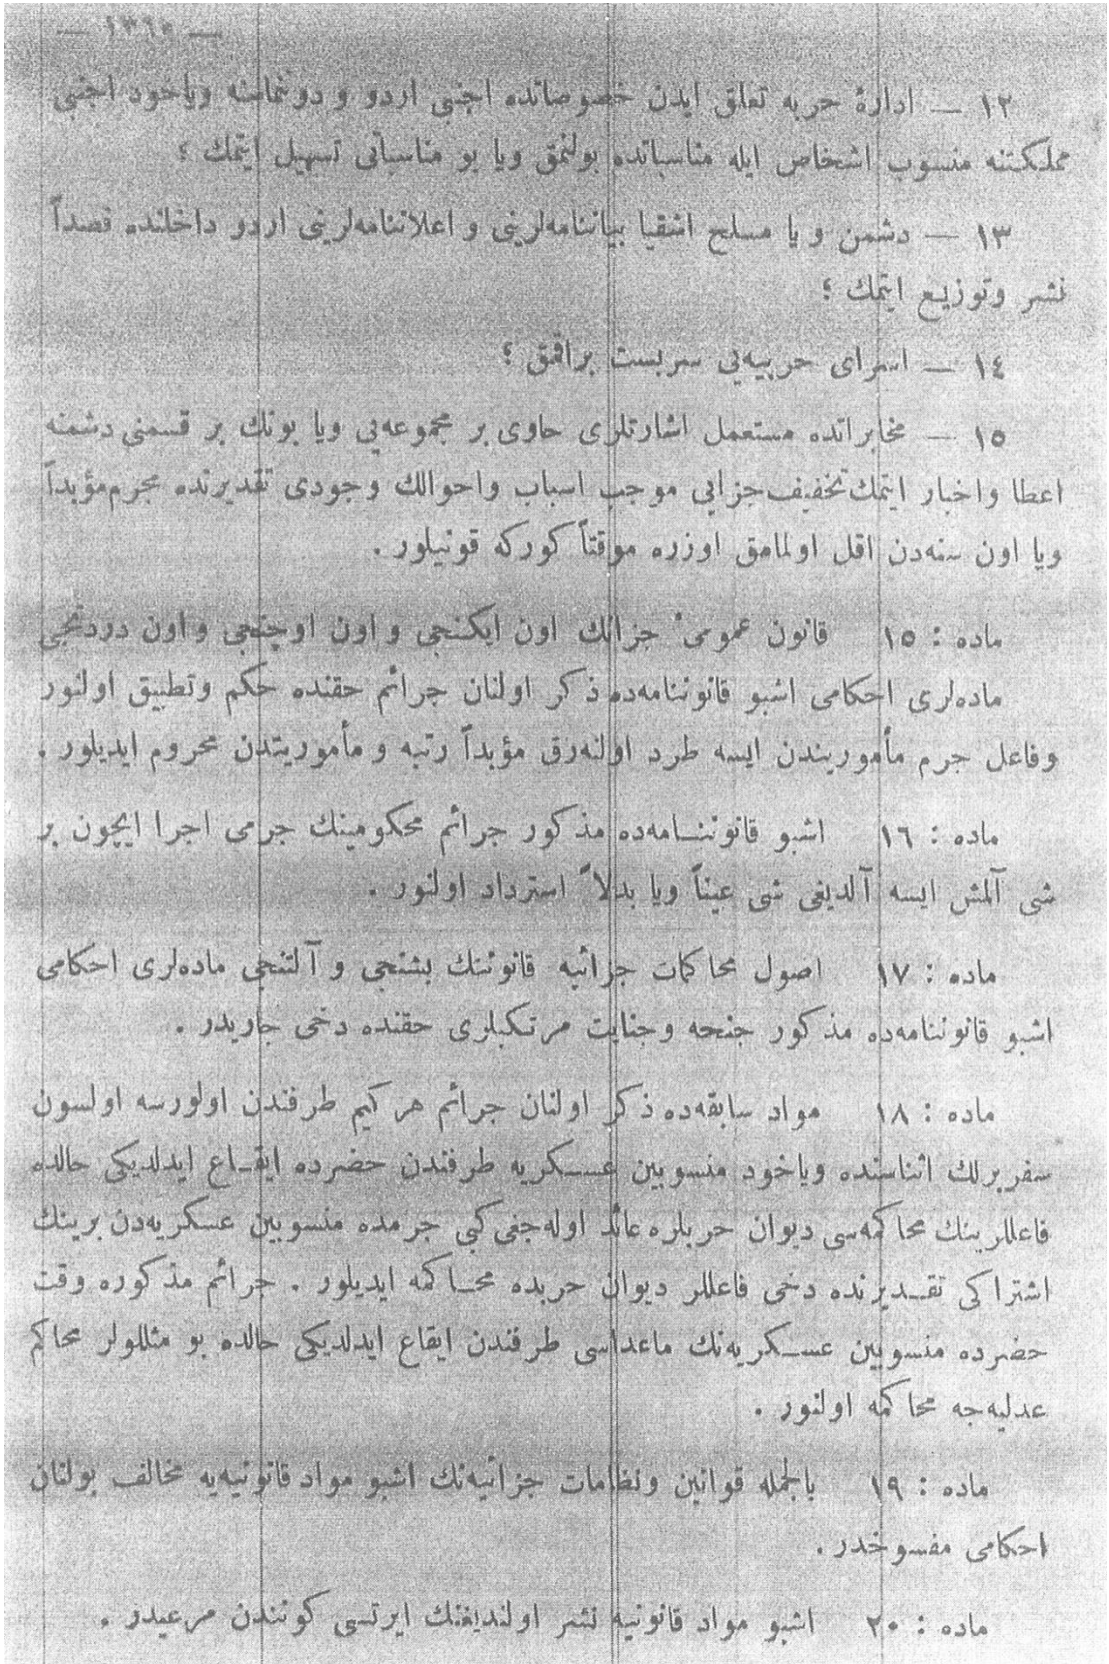 — ١٣٦٥ —
١٢ — ادارۀ حربه تعلق ایدن خصوصاتده اجنبی اردو و دونماسنه ویاخود اجنبی
مملکتنه منسوب اشخاص ایله مناسباتده بولنمق ویا بو مناسباتی تسهیل ایتمك ؛
١٣ — دشمن و یا مسلح اشقیا بیاننامه‌لرینی و اعلاننامه‌لرینی اردو داخلنده قصداً
نشر وتوزیع ایتمك ؛
١٤ — اسرای حربیه‌یی سربست براقمق ؛
١٥ — مخابراتده مستعمل اشارتلری حاوی بر مجموعه‌یی ویا بونك بر قسمنی دشمنه
اعطا واخبار ایتمك تخفیف جزایی موجب اسباب واحوالك وجودی تقدیرنده مجرم مؤبداً
ویا اون سنه‌دن اقل اولمامق اوزره موقتاً کورکه قونیلور .
ماده : ١٥ قانون عمومیٔ جزانك اون ایکنجی و اون اوچنجی و اون دردنجی
ماده‌لری احکامی اشبو قانوننامه‌ده ذکر اولنان جرائم حقنده حکم وتطبیق اولنور
وفاعل جرم مأموریندن ایسه طرد اولنه‌رق مؤبداً رتبه و مأموریتدن محروم ایدیلور .
ماده : ١٦ اشبو قانوننــامه‌ده مذکور جرائم محکومینك جرمی اجرا ایچون بر
شی آلمش ایسه آلدیغی شی عیناً ویا بدلاً استرداد اولنور .
ماده : ١٧ اصول محاکمات جزائیه قانوننك بشنجی و آلتنجی ماده‌لری احکامی
اشبو قانوننامه‌ده مذکور جنحه وجنایت مرتکبلری حقنده دخی جاریدر .
ماده : ١٨ مواد سابقه‌ده ذکر اولنان جرائم هر کیم طرفندن اولورسه اولسون
سفربرلك اثناسنده ویاخود منسوبین عســکریه طرفندن حضرده ایقــاع ایدلدیکی حالده
فاعللرینك محاکمه‌سی دیوان حربلره عائد اوله‌جغی کبی جرمده منسوبین عسکریه‌دن برینك
اشتراکی تقــدیرنده دخی فاعللر دیوان حربده محــاکمه ایدیلور . جرائم مذکوره وقت
حضرده منسوبین عســکریه‌نك ماعداسی طرفندن ایقاع ایدلدیکی حالده بو مثللولر محاکم
عدلیه‌جه محاکمه اولنور .
ماده : ١٩ بالجمله قوانین ونظامات جزائیه‌نك اشبو مواد قانونیه‌یه مخالف بولنان
احکامی مفسوخدر .
ماده : ٢٠ اشبو مواد قانونیه نشر اولندیغنك ایرتسی کونندن مرعیدر .